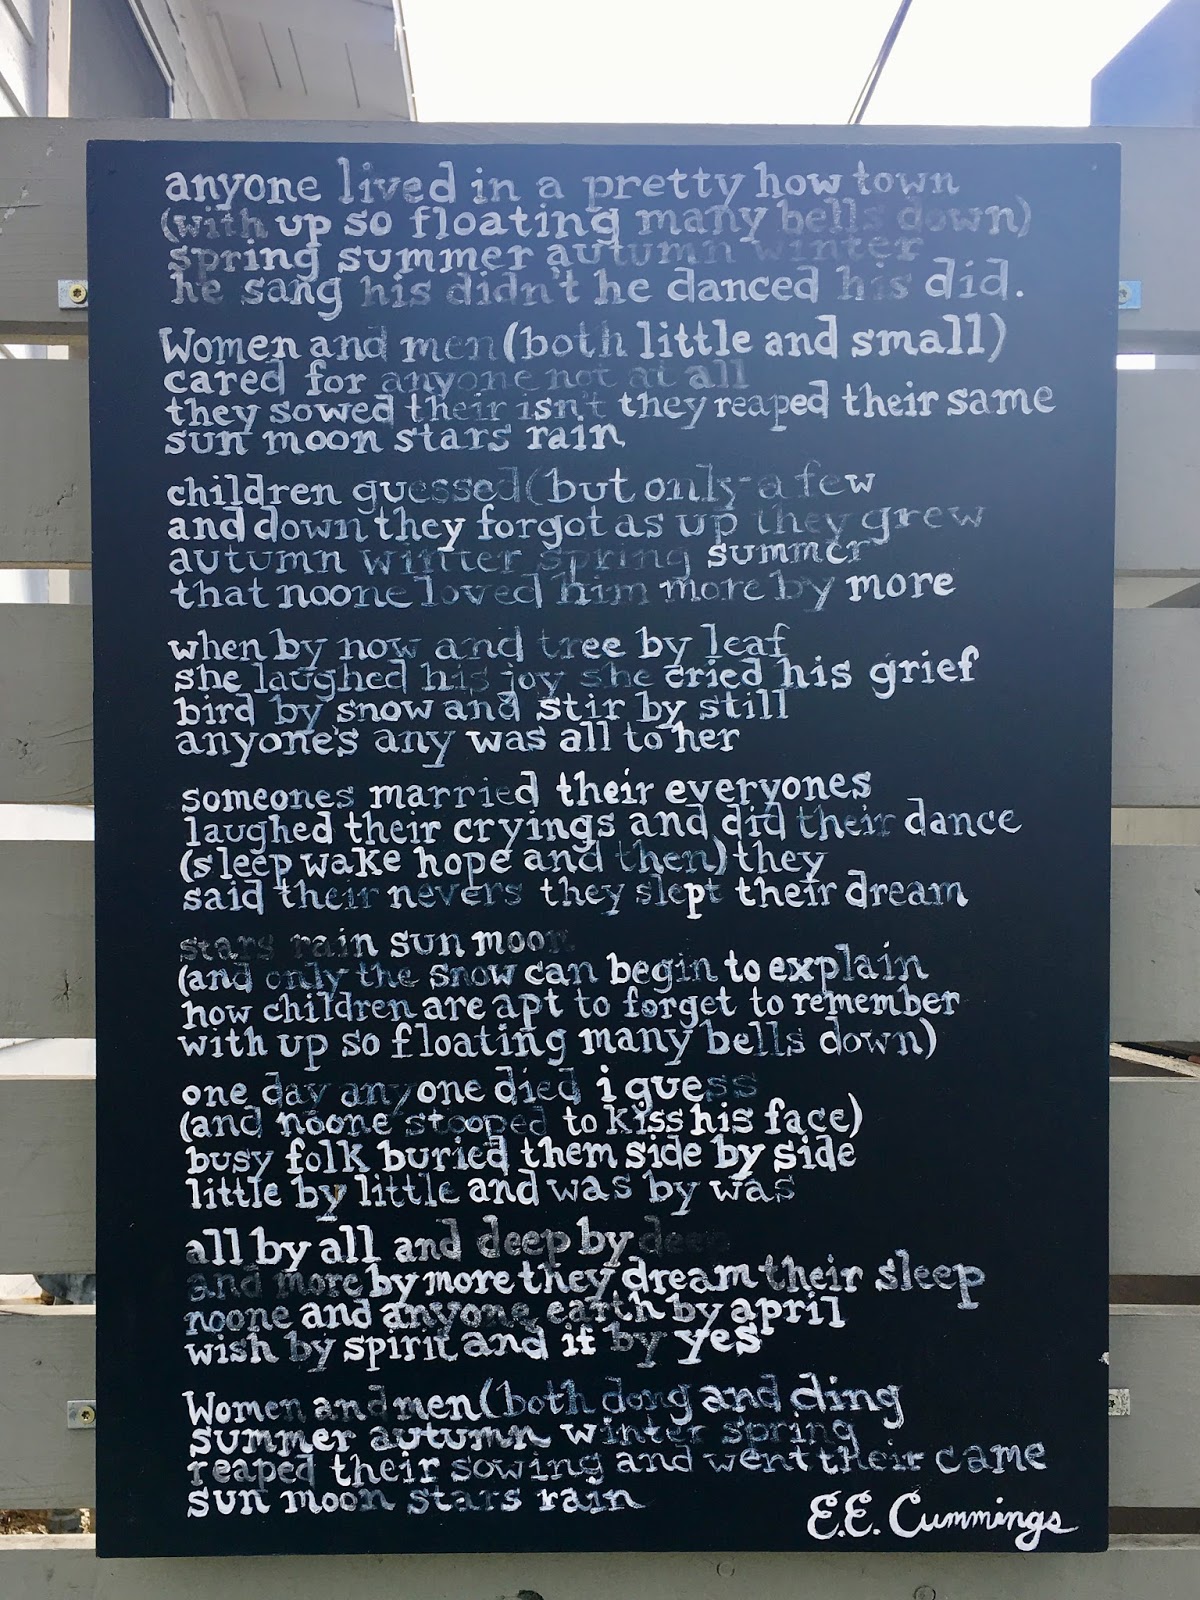 anyone lived in a pretty how town
(with up so floating many bells down)
spring summer autumn winter
he sang his didn't he danced his did.
Women and men (both little and small)
cared for anyone not at all
they sowed their isn't they reaped their same
sun moon stars rain
children guessed (but only a few
and down they forgot as up they grew
autumn winter spring summer
that noone loved him more by more
when by now and tree by leaf
she laughed his joy she cried his grief
bird by snow and stir by still
anyone's any was all to her
someones married their everyones
laughed their cryings and did their dance
(sleep wake hope and then) they
said their nevers they slept their dream
stars rain sun moon
(and only the snow can begin to explain
how children are apt to forget to remember
with up so floating many bells down)
one day anyone died i guess
(and noone stooped to kiss his face)
busy folk buried them side by side
little by little and was by was
all by all and deep by deep
and more by more they dream their sleep
noone and anyone earth by april
wish by spirit and if by yes
Women and men (both dong and ding
summer autumn winter spring
reaped their sowing and went their came
sun moon stars rain
E.E. Cummings